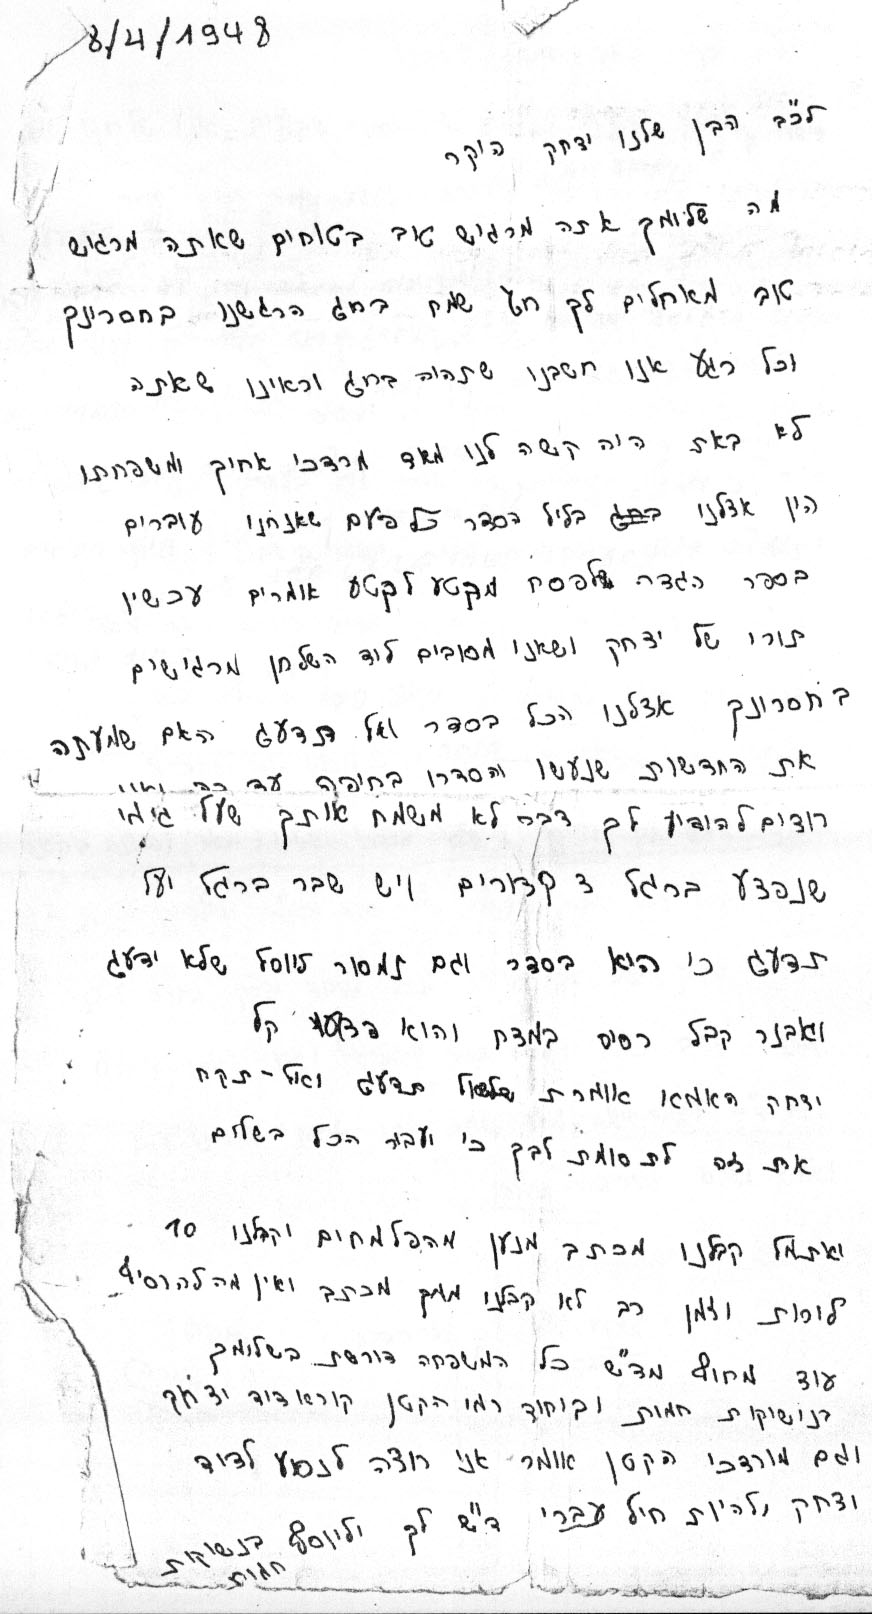 8/4/1948
לכ"ב הבן שלנו יצחק היקר
מה שלומך אתה מרגיש טוב בטוחים שאתה מרגיש
טוב מאוחלים לך חג שמח בחג הרגשנו בחסרינך
וכל רגע אנו חשבנו שתהיה בחג וראינו שאתה
לא באת היה קשה לנו מאד מרדכי אחיך ומשפחתו
הין אצלנו בחג בליל הסדר כל פעם שאנחנו עוברים
בספר הגדה שלפסח מקטע לקטע אומרים עכשיו
תורו של יצחק ושאנו מסובים ליד השלחן מרגישים
בחסרונך אצלנו הכל בסדר ואל תדעג האם שמעתה
את החדשות שנעשו והסדרו בחיפה עד כה
רוצים להודיע לך דבר לא משמח אותך שעל גימי
שנפצע ברגל 2 קצורים ויש שבר ברגל ועל
תדעג כי היא בסדר וגם תמסור ליוסל שלא ידעג
ואבנר קבל רסיס במצח והוא פצוע קל
יצחק האמא אומרת שלא תדעג ואל-תקח
את זה לתסומת לבך כי יעבור הכל בשלום
ואתמל קבלנו מכתב מנען מהפלמחים וקבלנו 10
לירות וזמן רב לא קבלנו ממך מכתב ואין מה להוסיף
עוד מחוץ מד"ש כל המשפחה דורשת בשלומך
בנשיקות חמות ובוחוד רמי הקטן קורא דוד יצחק
וגם מורדכי הקטן אומר אני רוצה לנסוע לדוד
יצחק ולהיות חיל עברי ד"ש לך וליוסף בנשיקות
חמות